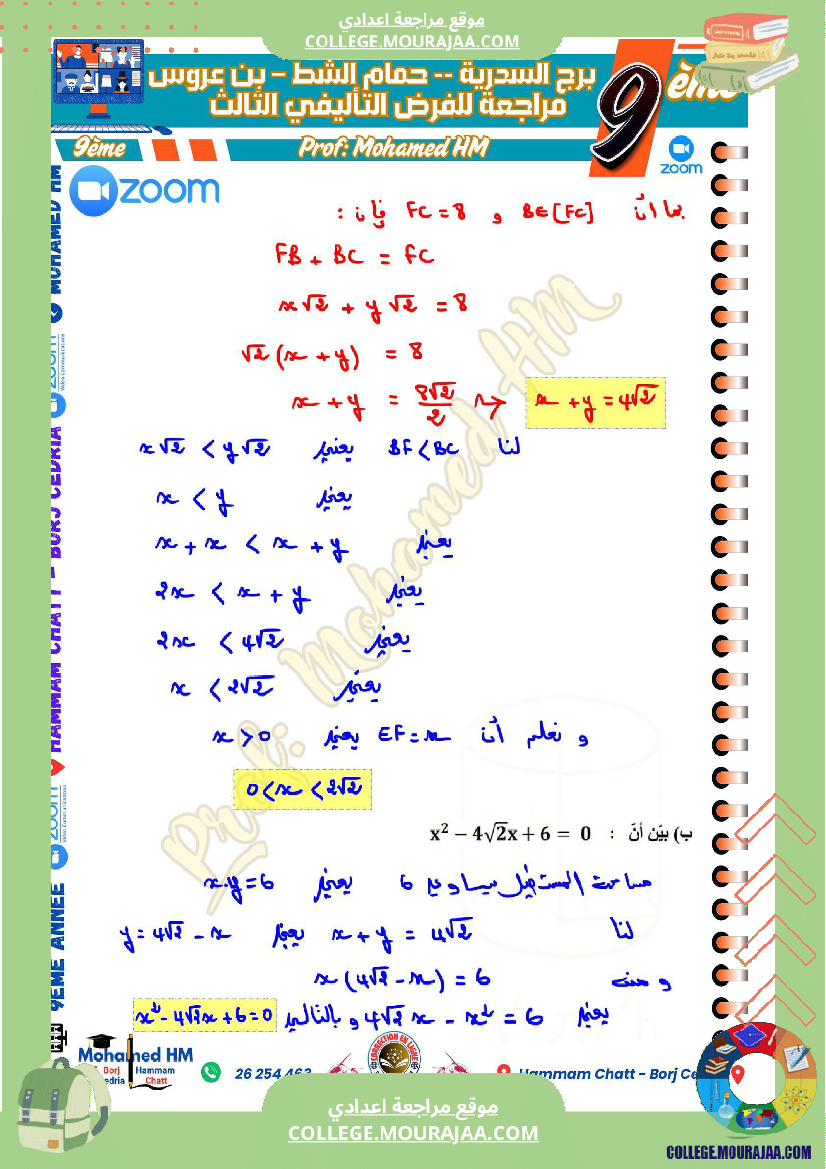 موقع مراجعة اعدادي
COLLEGE.MOURAJAA.COM
برج السدرية -- حمام الشط - بن عروس
مراجعة للفرض التأليفي الثالث
9ème
9ème
Prof: Mohamed HM
zoom
zoom
بما أنّ B∈[FC] و FC = 8 فإن :
FB + BC = FC
x√2 + y√2 = 8
√2 (x + y) = 8
x + y = 8√2/2 ⇝ x + y = 4√2
لنا BF < BC يعني x√2 < y√2
يعني x < y
يعني x + x < x + y
يعني 2x < x + y
يعني 2x < 4√2
يعني x < 2√2
و نعلم أن EF = x يعني x > 0
0 < x < 2√2
ب) بيّن أنّ : x² − 4√2x + 6 = 0
مساحة المستطيل يساوي 6 يعني x.y = 6
لنا x + y = 4√2 يعني y = 4√2 - x
و منه x (4√2 - x) = 6
يعني 4√2 x - x² = 6 و بالتالي x² - 4√2x + 6 = 0
Prof: Mohamed HM
MOHAMED HM
zoom
HAMMAM CHATT - BORJ CEDRIA
zoom
9EME ANNEE
Mohamed HM
Borj Cedria
Hammam Chatt
26 254 463
CORRECTION EN LIGNE
Hammam Chatt - Borj Ce
موقع مراجعة اعدادي
COLLEGE.MOURAJAA.COM
COLLEGE.MOURAJAA.COM